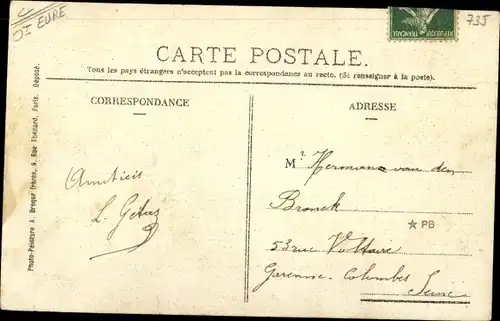 OI EURE
735
REPUBLIQUE FRANCAISE
CARTE POSTALE.
Tous les pays étrangers n'acceptent pas la correspondance au recto. (Se renseigner à la poste).
CORRESPONDANCE
ADRESSE
Photo-Peinture A. Breger frères, 9, Rue Thénard, Paris. Déposé.
Amitiés
L. Gétaz
Mr Hermann van den
Broeck
PB
53 rue Voltaire
Garenne-Colombes
Seine